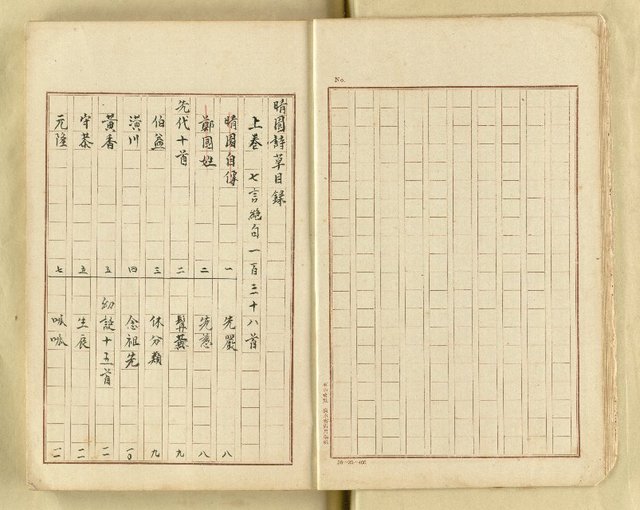 No.
晴園詩草目録
上卷 七言絶句 一百三十八首
晴園自傳 一
鄭國姓 二
先代十首 二
伯益 三
潢川 四
黃香 五
守恭 五
元隆 七
先嚴 八
先慈 八
九
休分類 九
念祖先 一〇
幼誕十五首 一一
生辰 一一
呱呱 一一